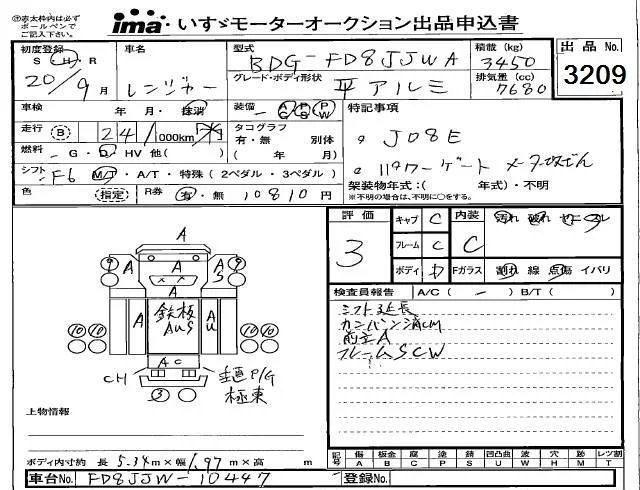 ※太枠内は必ず
ボールペンで
ご記入下さい。
ima® いすゞモーターオークション出品申込書
初度登録
S・H・R
20/9月
車名
レンジャー
型式
BDG-FD8JJWA
グレード・ボディ形状
平 アルミ
積載 (kg)
3450
排気量 (cc)
7680
出品 No.
3209
車検 年・月・抹消
装備 AC PS PW
特記事項
走行 B 24/000km
タコグラフ
有・無 別体
( 年 月)
J08E
燃料 ・G・D・HV 他( )
パワーゲート
シフト F6 M/T・A/T・特殊 (2ペダル・3ペダル)
架装物年式:( 年式)・不明
※不明の場合は、不明に○をする。
色 (指定) R券 有・無 10810円
評価
3
キャブ C
フレーム C
ボディ D
内装
C
汚れ 破れ
Fガラス 割れ 線 点傷 イバリ
検査員報告 A/C( - ) B/T( )
シフト延長
カンバン済CM
前立A
フレームSCW
A
9 A A A S 9
A
A 鉄板 A U S A U
10 10 10 10
AC
CH
P/G
極東
3
上物情報
ボディ内寸約 長 5.34m×幅 1.97m×高 m
記号 傷A 板金B 腐C 塗P 錆S 凹凸曲U 波W 穴H 跡M レツ割T
車台No. FD8JJW-10447
登録No.